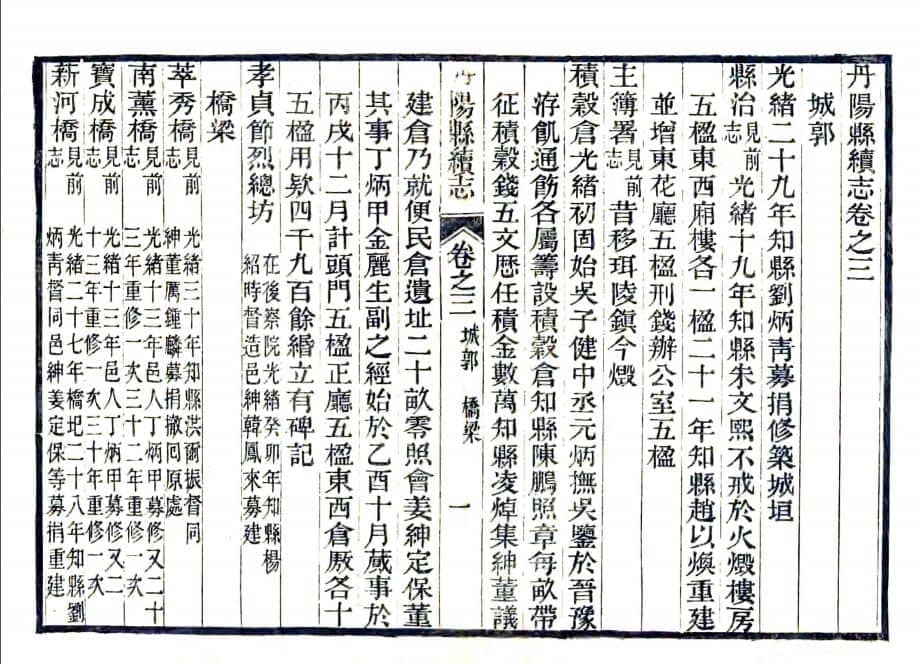 丹陽縣續志卷之三
城郭
光緒二十九年知縣劉炳靑募捐修築城垣
縣治見前志 光緒十九年知縣朱文熙不戒於火燬樓房
五楹東西廂樓各一楹二十一年知縣趙以煥重建
並增東花廳五楹刑錢辦公室五楹
主簿署見前志 昔移珥陵鎭今燬
積穀倉光緒初固始吳子健中丞元炳撫吳鑒於晉豫
洊飢通飭各屬籌設積穀倉知縣陳鵬照章每畝帶
征積穀錢五文歷任積金數萬知縣凌焯集紳董議
丹陽縣續志 卷之三 城郭 橋梁 一
建倉乃就便民倉遺址二十畝零照會姜紳定保董
其事丁炳甲金麗生副之經始於乙酉十月蕆事於
丙戌十二月計頭門五楹正廳五楹東西倉厫各十
五楹用欵四千九百餘緡立有碑記
孝貞節烈總坊 在後察院光緒癸卯年知縣楊
紹時督造邑紳韓鳳來募建
橋梁
萃秀橋見前志 光緒三十年知縣洪爾振督同
紳董厲鍾麟募捐撤囘原處
南薰橋見前志 光緒十三年邑人丁炳甲募修又二十
三年重修一次三十二年重修一次
寶成橋見前志 光緒十三年邑人丁炳甲募修又二
十三年重修一次三十年重修一次
新河橋見前志 光緒二十七年橋圯二十八年知縣劉
炳靑督同邑紳姜定保等募捐重建